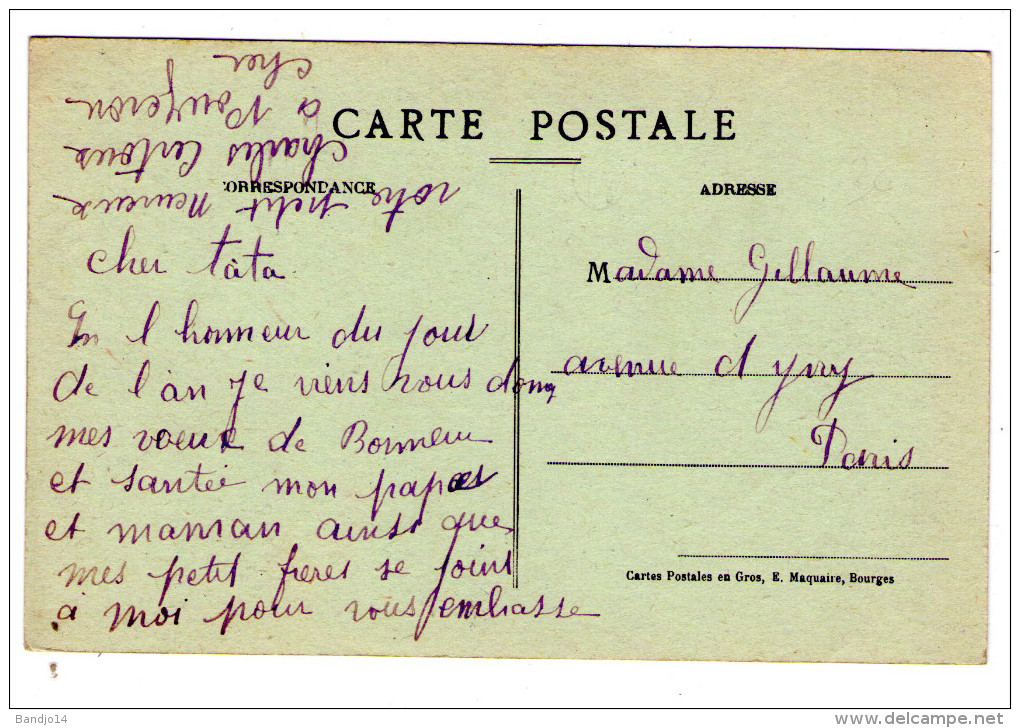 CARTE POSTALE
CORRESPONDANCE
ADRESSE
cher tàta
En l honneur du jour
de l'an Je viens vous donner
mes voeux de Bonneur
et santée mon papa et
et maman ainsi que
mes petit freres se joint
à moi pour vous embrasse
votre petit neveux
Charles
a Vouzeron
cher
Madame Gillaume
avenue d yvry
Paris
Cartes Postales en Gros, E. Maquaire, Bourges
Bandjo14
www.delcampe.net